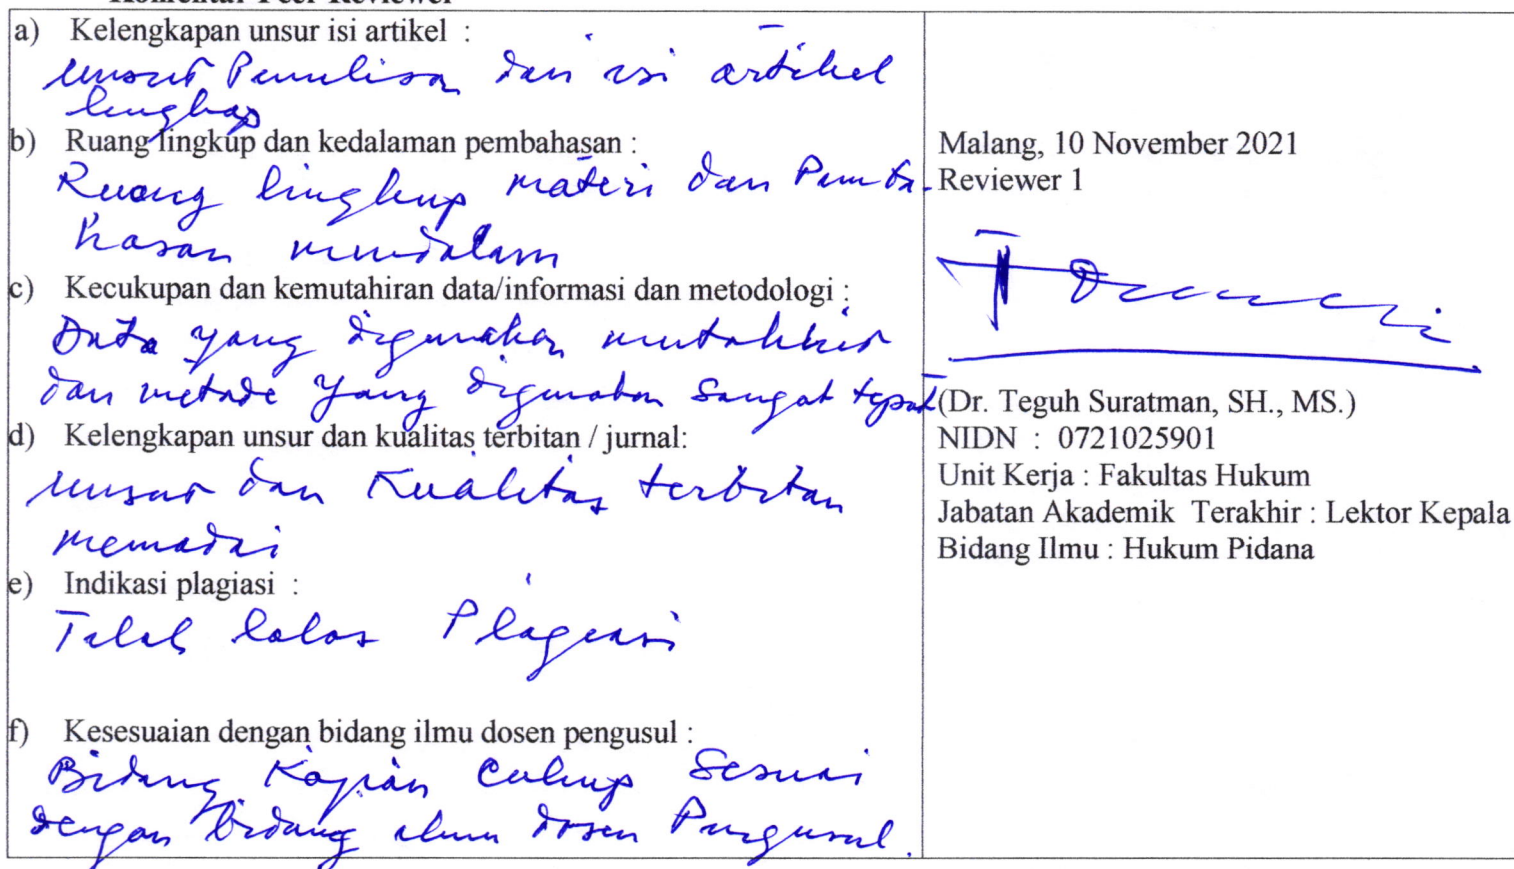 Komentar Peer Reviewer
a) Kelengkapan unsur isi artikel :
unsur Penulisan dan isi artikel
lengkap
b) Ruang lingkup dan kedalaman pembahasan :
Ruang lingkup materi dan Pemba-
hasan mendalam
c) Kecukupan dan kemutahiran data/informasi dan metodologi :
Data yang digunakan mutakhir
dan metode yang digunakan sangat tepat
d) Kelengkapan unsur dan kualitas terbitan / jurnal:
unsur dan Kualitas terbitan
memadai
e) Indikasi plagiasi :
Telah lolos Plagiasi
f) Kesesuaian dengan bidang ilmu dosen pengusul :
Bidang Kajian Cukup Sesuai
dengan bidang ilmu dosen Pengusul.
Malang, 10 November 2021
Reviewer 1
(Dr. Teguh Suratman, SH., MS.)
NIDN : 0721025901
Unit Kerja : Fakultas Hukum
Jabatan Akademik Terakhir : Lektor Kepala
Bidang Ilmu : Hukum Pidana